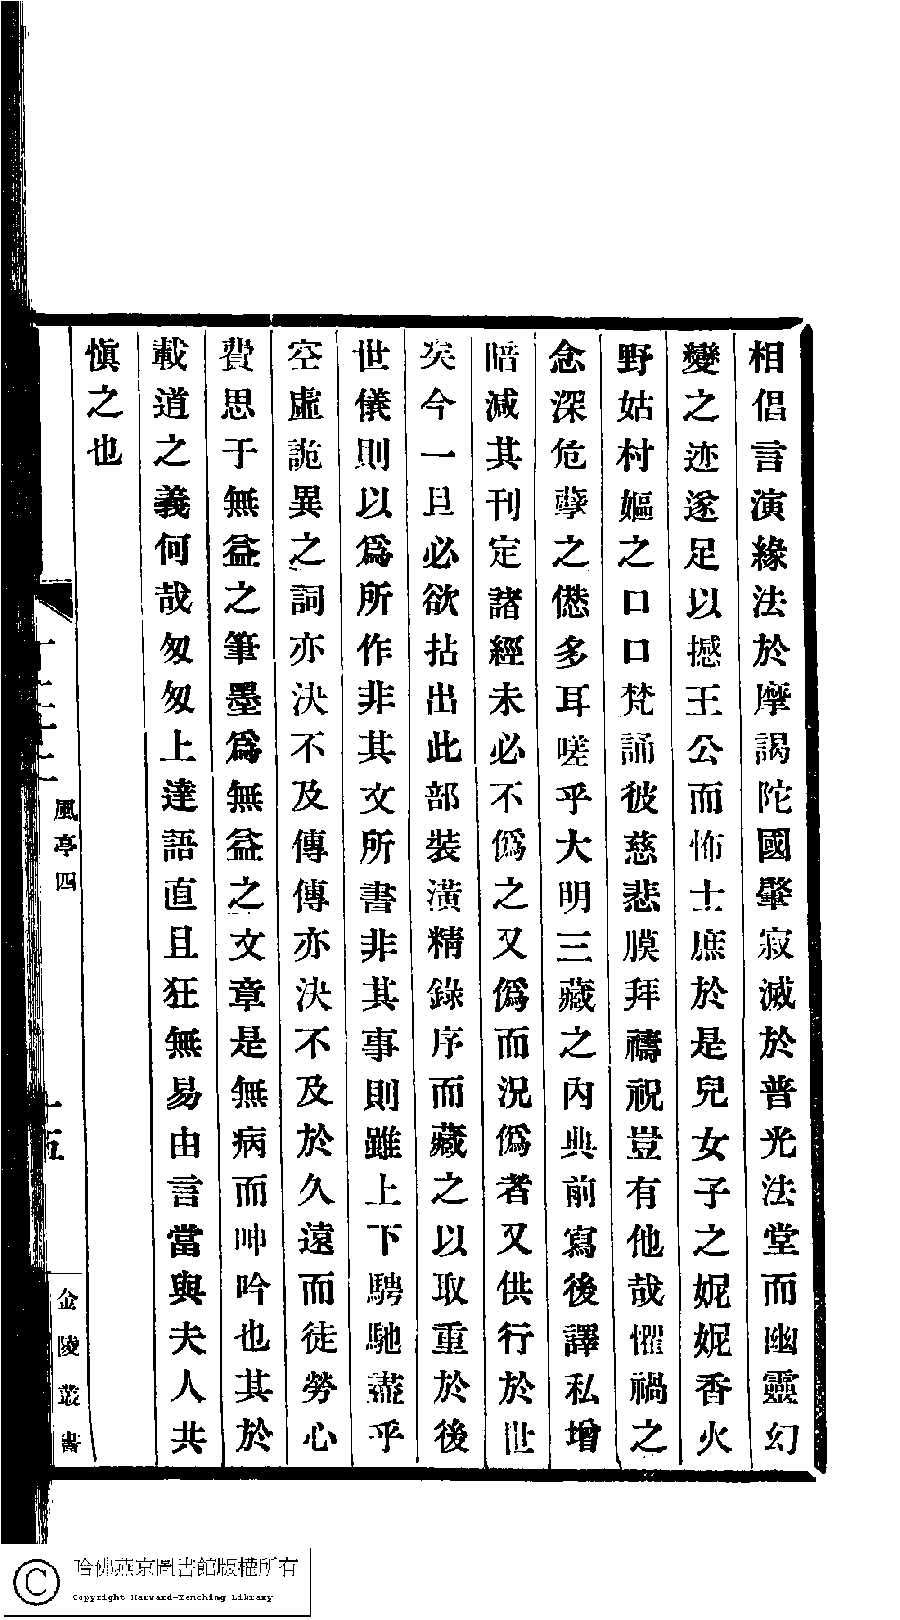 相倡言演緣法於摩謁陀國肇寂滅於普光法堂而幽靈幻
變之迹遂足以撼王公而怖士庶於是兒女子之妮妮香火
野姑村嫗之口口梵誦彼慈悲膜拜禱祝豈有他哉懼禍之
念深危孽之愆多耳嗟乎大明三藏之內典前寫後譯私增
暗減其刊定諸經未必不僞之又僞而況僞者又供行於世
矣今一旦必欲拈出此部裝潢精錄序而藏之以取重於後
世儀則以爲所作非其文所書非其事則雖上下騁馳盡乎
空虛詭異之詞亦決不及傳傳亦決不及於久遠而徒勞心
費思于無益之筆墨爲無益之文章是無病而呻吟也其於
載道之義何哉匆匆上達語直且狂無易由言當與夫人共
慎之也
風亭四
金陵叢書
哈佛燕京圖書館版權所有
Copyright Harvard-Yenching Library